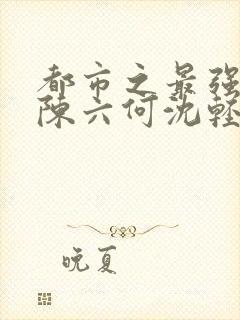 都市之最强
陈六何沈轻
晚夏